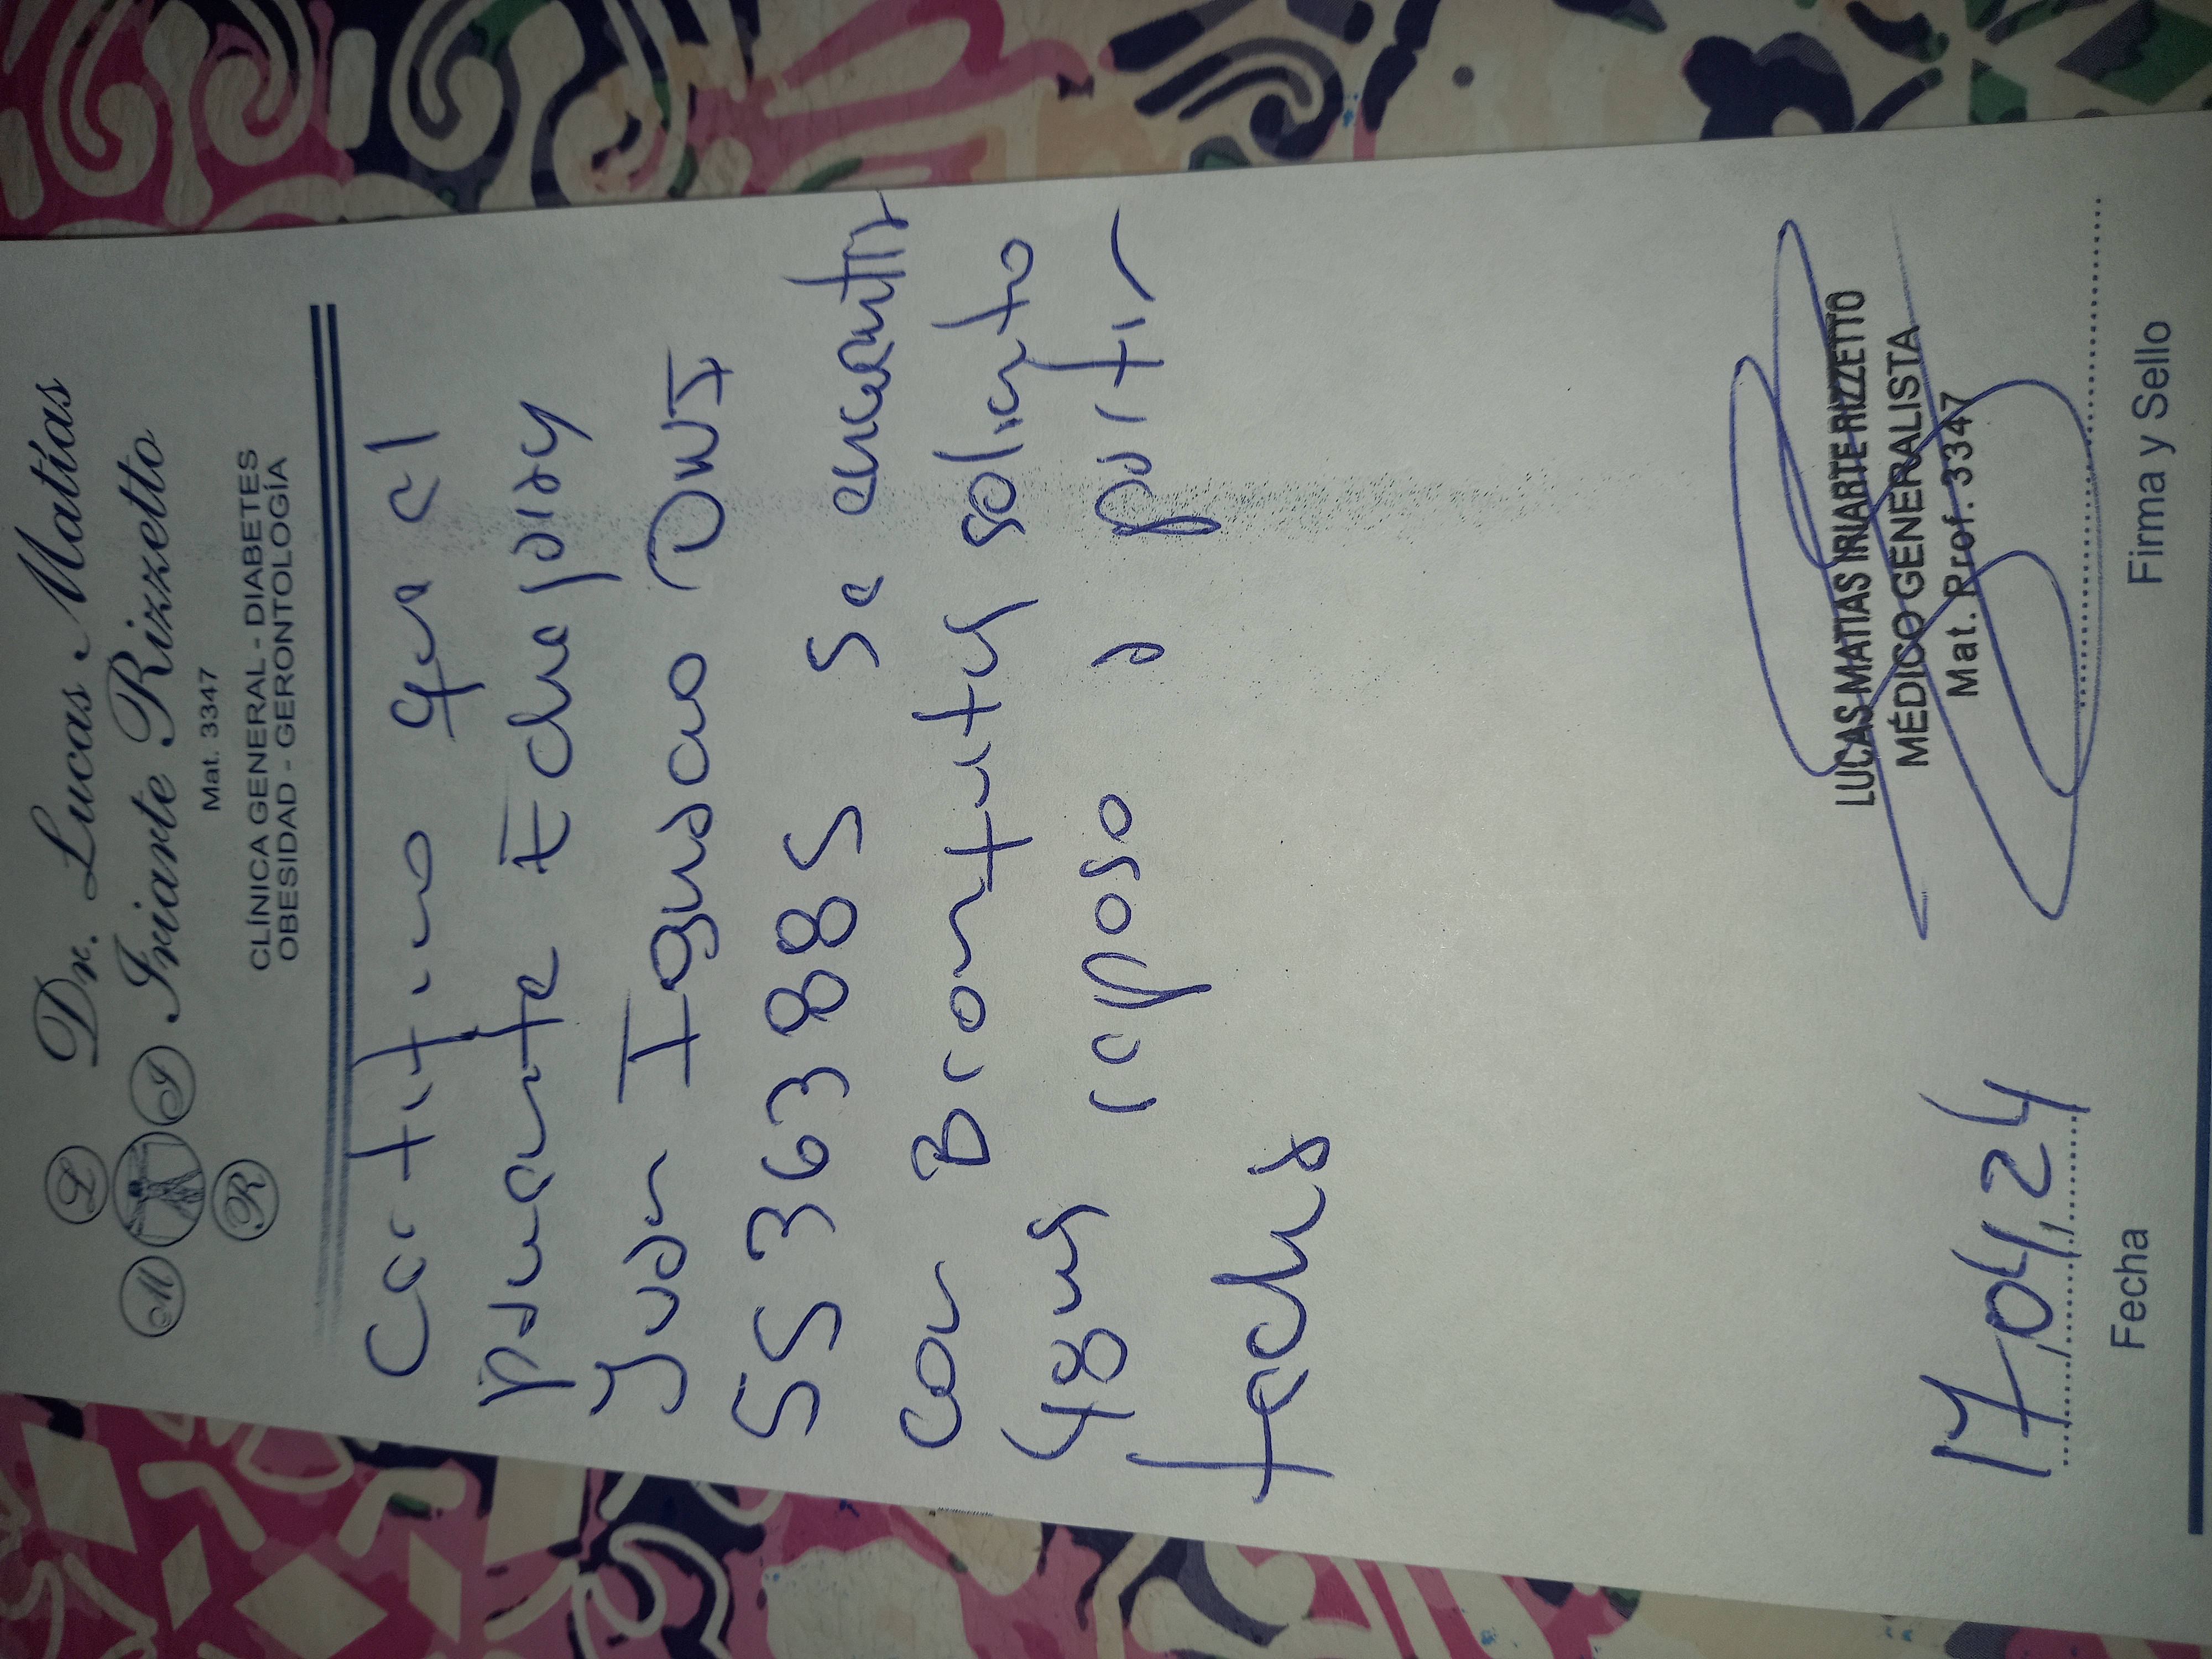 Dr. Lucas Matías
Iriarte Rizzetto
L
M
I
R
Mat. 3347
CLÍNICA GENERAL - DIABETES
OBESIDAD - GERONTOLOGÍA
Certifico que el
paciente Echegaray
Juan Ignacio DNI
55363885 se encuentra
con solicito
48hs reposo a partir
fecha
LUCAS MATIAS IRIARTE RIZZETTO
MÉDICO GENERALISTA
Mat. Prof. 3347
17/04/24
Fecha
Firma y Sello